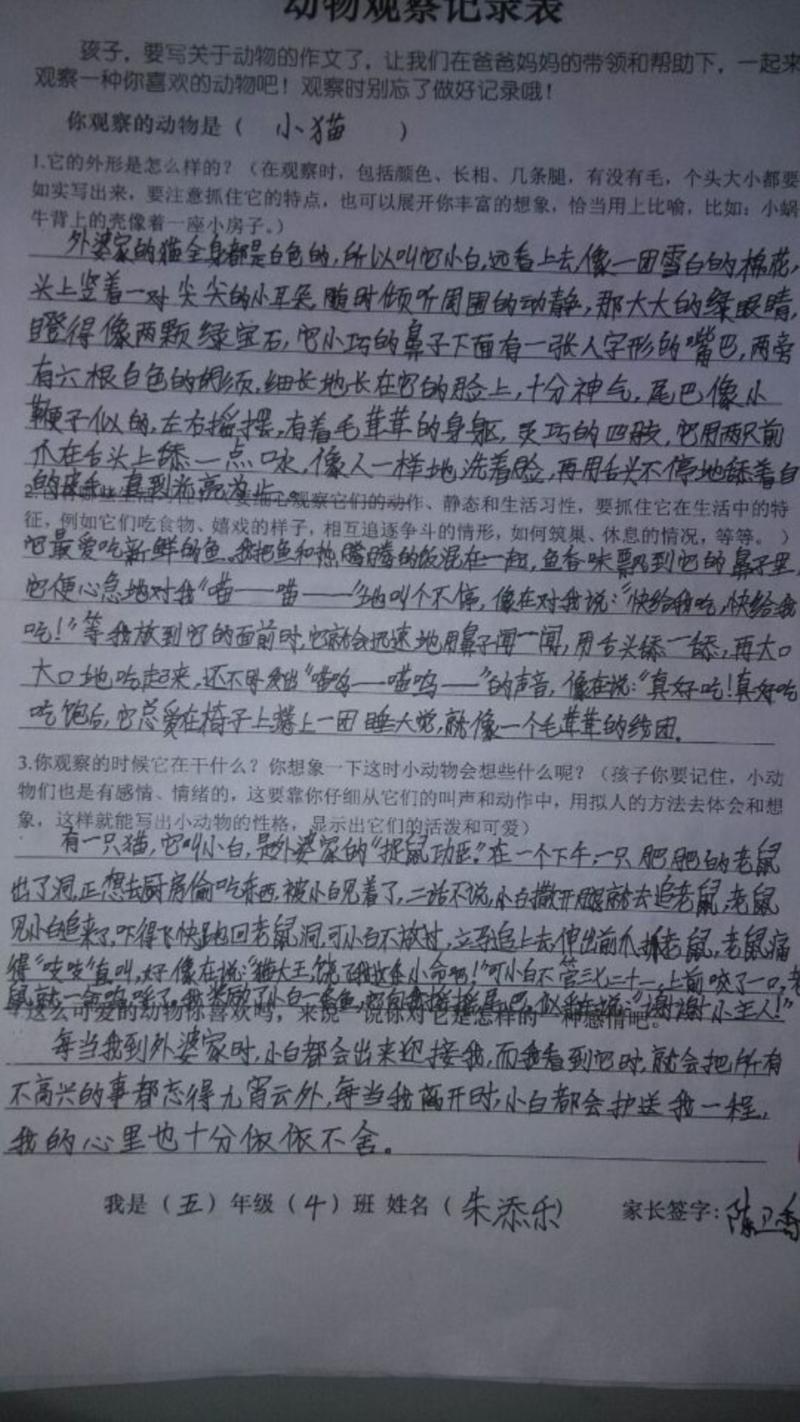 动物观察记录表
孩子,要写关于动物的作文了,让我们在爸爸妈妈的带领和帮助下,一起来
观察一种你喜欢的动物吧!观察时别忘了做好记录哦!
你观察的动物是( 小猫 )
1.它的外形是怎么样的?(在观察时,包括颜色、长相、几条腿,有没有毛,个头大小都要
如实写出来,要注意抓住它的特点,也可以展开你丰富的想象,恰当用上比喻,比如:小蜗
牛背上的壳像着一座小房子。)
外婆家的猫全身都是白色的,所以叫它小白,远看上去,像一团雪白的棉花,
头上竖着一对尖尖的小耳朵,随时倾听周围的动静,那大大的绿眼睛,
瞪得像两颗绿宝石,它小巧的鼻子下面有一张人字形的嘴巴,两旁
有六根白色的胡须,细长地长在它的脸上,十分神气,尾巴像小
鞭子似的,左右摇摆,有着毛茸茸的身躯,灵巧的四肢,它用两只前
爪在舌头上舔一点口水,像人一样地洗着脸,再用舌头不停地舔着自
的 直到光亮为止。
细心观察它们的动作、静态和生活习性,要抓住它在生活中的特
征,例如它们吃食物、嬉戏的样子,相互追逐争斗的情形,如何筑巢、休息的情况,等等。)
它最爱吃新鲜的鱼。我把鱼和热腾腾的饭混在一起,鱼香味飘到它的鼻子里,
它便心急地对我“喵——喵——”地叫个不停,像在对我说:“快给我吃,快给我
吃!”等我放到它的面前时,它就会迅速地用鼻子闻一闻,用舌头舔一舔,再大口
大口地吃起来,还不时发出“喵呜——喵呜——”的声音,像在说:“真好吃!真好吃
吃饱后,它总爱在椅子上蜷上一团睡大觉,就像一个毛茸茸的线团。
3.你观察的时候它在干什么?你想象一下这时小动物会想些什么呢?(孩子你要记住,小动
物们也是有感情、情绪的,这要靠你仔细从它们的叫声和动作中,用拟人的方法去体会和想
象,这样就能写出小动物的性格,显示出它们的活泼和可爱)
有一只猫,它叫小白,是外婆家的“捉鼠功臣。”在一个下午,一只肥肥的老鼠
出了洞,正想去厨房偷吃东西,被小白见着了,二话不说,小白撒开腿就去追老鼠,老鼠
见小白追来了,吓得飞快跑回老鼠洞,可小白不放过,立马追上去伸出前爪抓老鼠,老鼠痛
得“吱吱”直叫,好像在说:“猫大王,饶了我这条小命吧!”可小白不管三七二十一,上前咬了一口,老
鼠就一命呜呼了。我奖励了小白一条鱼, 摇摇尾巴,似乎在说:“谢谢小主人!”
这么可爱的动物你喜欢吗,来说一说你对它是怎样的一种感情吧。
每当我到外婆家时,小白都会出来迎接我,而我看到它时,就会把所有
不高兴的事都忘得九宵云外,每当我离开时,小白都会护送我一程,
我的心里也十分依依不舍。
我是(五)年级(4)班 姓名( 朱添乐) 家长签字:陈卫香